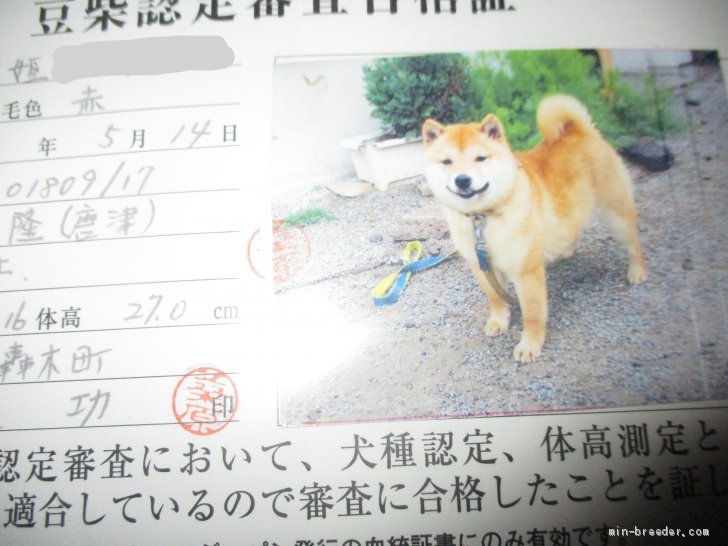 豆柴認定審査合格証
姫
毛色 赤
年 5 月 14 日
01809/17
隆(唐津)
16 体高 27.0 cm
轟木町
功 印
認定審査において、犬種認定、体高測定と
適合しているので審査に合格したことを証し
発行の血統証書にのみ有効です
min-breeder.com